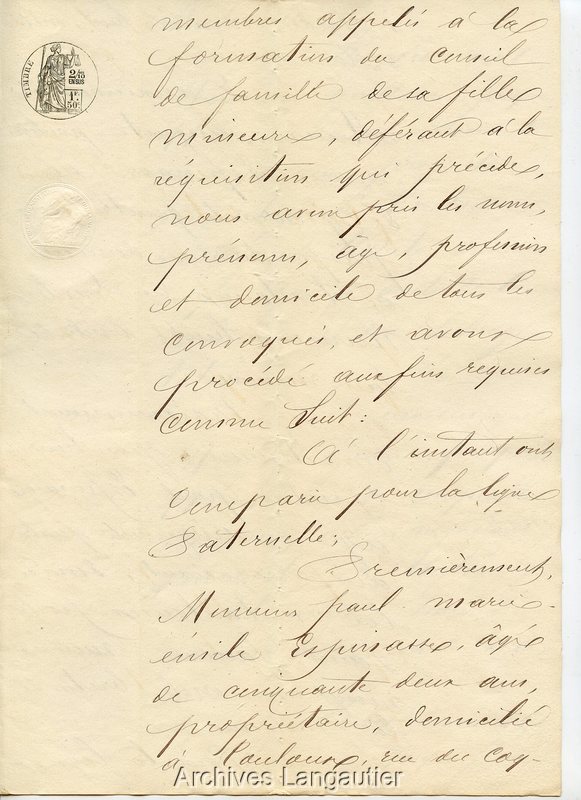 TIMBRE
2/10
EN SUS
1F
50c
membres appelés à la
formation du Conseil
de famille de sa fille
mineure, déférant à la
réquisition qui précède,
nous avons pris les noms,
prénoms, âge, profession
et domicile de tous les
convoqués, et avons
procédé aux fins requises
comme Suit:
À l'instant ont
Comparu pour la ligne
Paternelle;
Premièrement,
Monsieur paul marie
émile Espinasse, âgé
de cinquante deux ans,
propriétaire, domicilié
à Toulouse, rue du Coq-
Archives Langautier